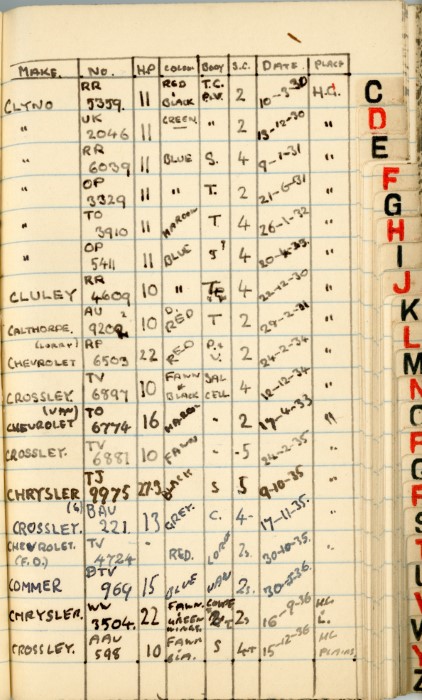 MAKE. No. H.P COLOUR BODY S.C. DATE. PLACE
CLYNO RR 5359. 11 RED & BLACK T.C. 2 10-3-30 H.G.
" UK 2046 11 GREEN " 2 13-12-30 "
" RR 6039 11 BLUE S. 4 9-1-31 "
" OP 3329 11 " T. 2 21-6-31 "
" TO 3910 11 MAROON T 4 26-1-32 "
" OP 5411 11 BLUE 4 "
CLULEY RR 4609 10 " 4 22-12-30 "
CALTHORPE. AU 10 RED T 2 "
(LORRY) CHEVROLET RR 6503 22 RED 2 24-2-34 "
CROSSLEY. TV 6897 10 FAWN & BLACK SAL 4 12-12-34 "
(VAN) CHEVROLET TO 6774 16 MAROON " 2 19-4-33 "
CROSSLEY. TV 6881 10 FAWN " -5 24-2-35 "
CHRYSLER TJ 9975 BLACK S 5 9-10-35 "
CROSSLEY. BAU 221. 13 GREY. C. 4- 17-11-35. "
CHEVROLET. (F.O.) TV 4724 - RED. 2s 30-10-35. "
COMMER BTV 969 15 BLUE VAN 2s. 30-5-36. "
CHRYSLER. 3504. 22 FAWN GREEN WINGS. COUPE 16-9-36
CROSSLEY. AAU 598 10 FAWN S 15-12-36 PLAINS
C
D
E
F
G
H
I
J
K
L
M
N
O
P
Q
R
S
T
U
V
W
Y
Z